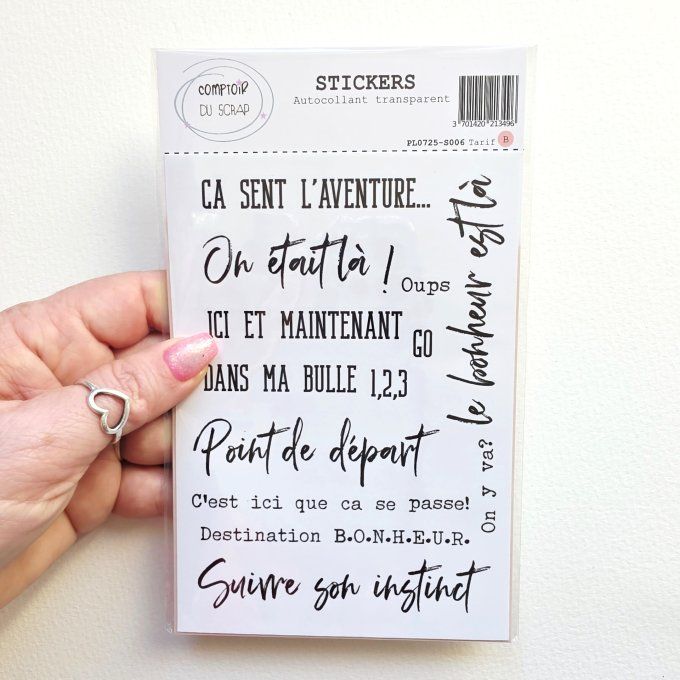 COMPTOIR
DU SCRAP
STICKERS
Autocollant transparent
3 701420 213496
PL0725-S006 Tarif B
CA SENT L'AVENTURE...
On était là !
Oups
ICI ET MAINTENANT
GO
DANS MA BULLE 1,2,3
Point de départ
C'est ici que ca se passe!
Destination B.O.N.H.E.U.R.
Suivre son instinct
le bonheur est là
On y va?